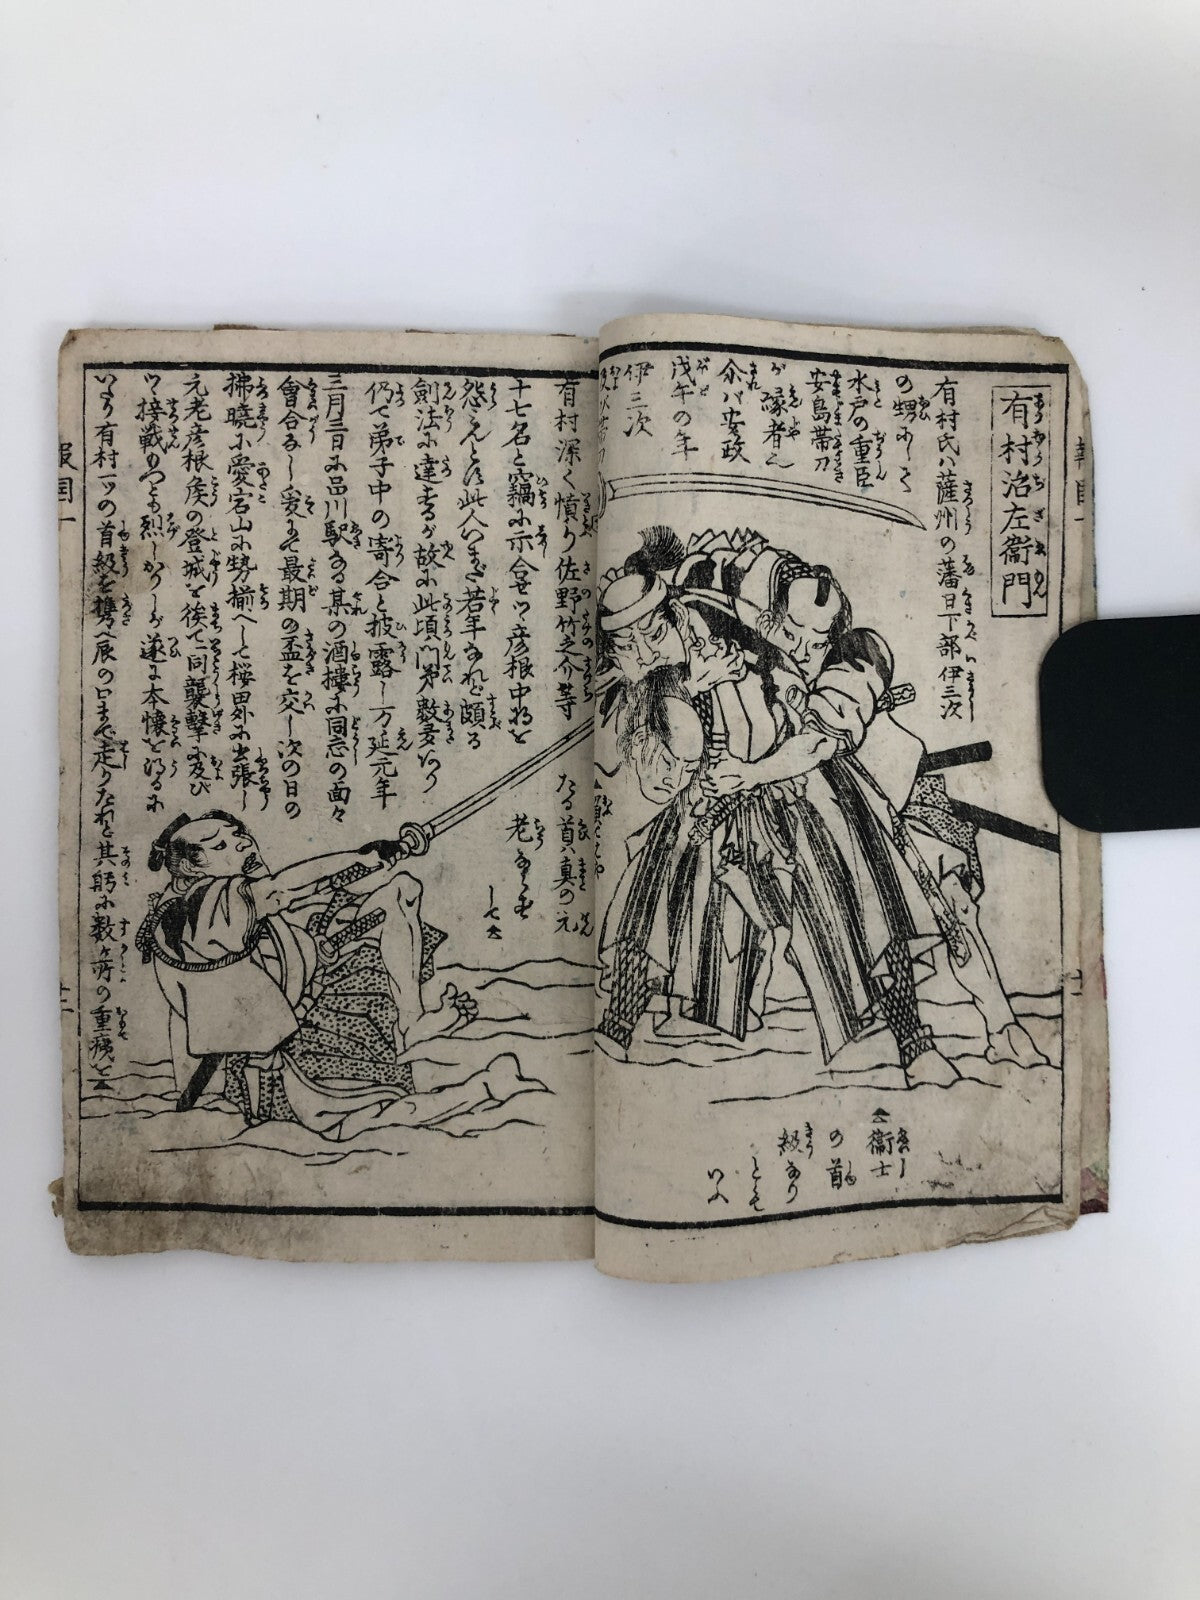 有村治左衞門
有村氏ハ薩州の藩日下部伊三次
の甥にして
水戸の重臣
安島帯刀
が縁者也
余ハ安政
戊午の年
伊三次
有村深く憤り佐野竹之介等
十七名と竊に示合せツヽ彦根中将を
怨こと此人いまだ若年なれど頗る
剣法に達するが故に此頃門弟数多あり
仍て弟子中の寄合と披露し万延元年
三月三日に品川駅なる某の酒樓に同志の面々
會合なし爰にて最期の盃を交し次の日の
拂曉に愛宕山に勢揃へして桜田外に出張し
元老彦根矦の登城を待て一同襲撃に及び
ツヽ接戦もつとも烈しかりしが遂に本懐を得るに
いたり有村一ツの首級を携へ辰の口まで走りたれど其躬に数ヶ所の重痍を
たる首ハ真の元
老ならで
衞士
の首
級なり
とも
いふ
報国一